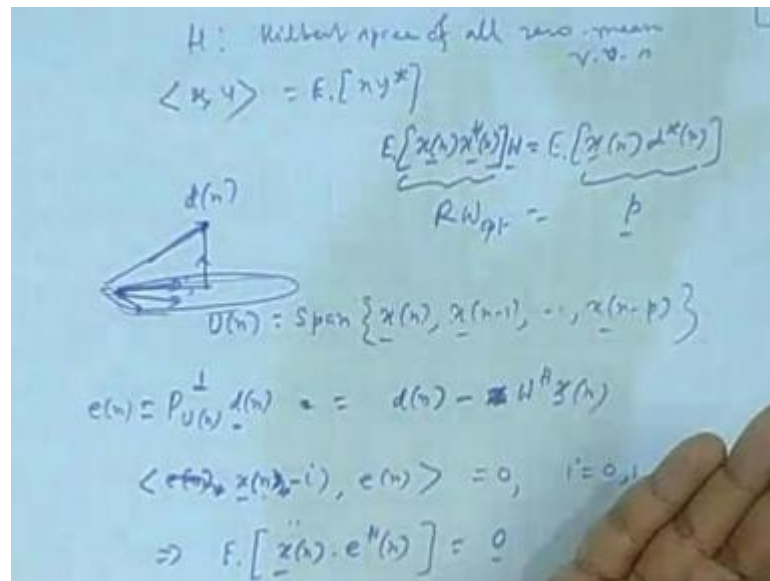 H : Hilbert space of all zero-mean
r.v.s
<x, y> = E.[x y*]
E.[x(n) x^H(n)] W = E.[x(n) d*(n)]
R W_opt = p
d(n)
U(n) = Span {x(n), x(n-1), .., x(n-p)}
e(n) = P^⊥_U(n) d(n) = d(n) - W^H x(n)
< x(n-i), e(n) > = 0, i = 0, 1
=> E.[x(n) . e^H(n)] = 0